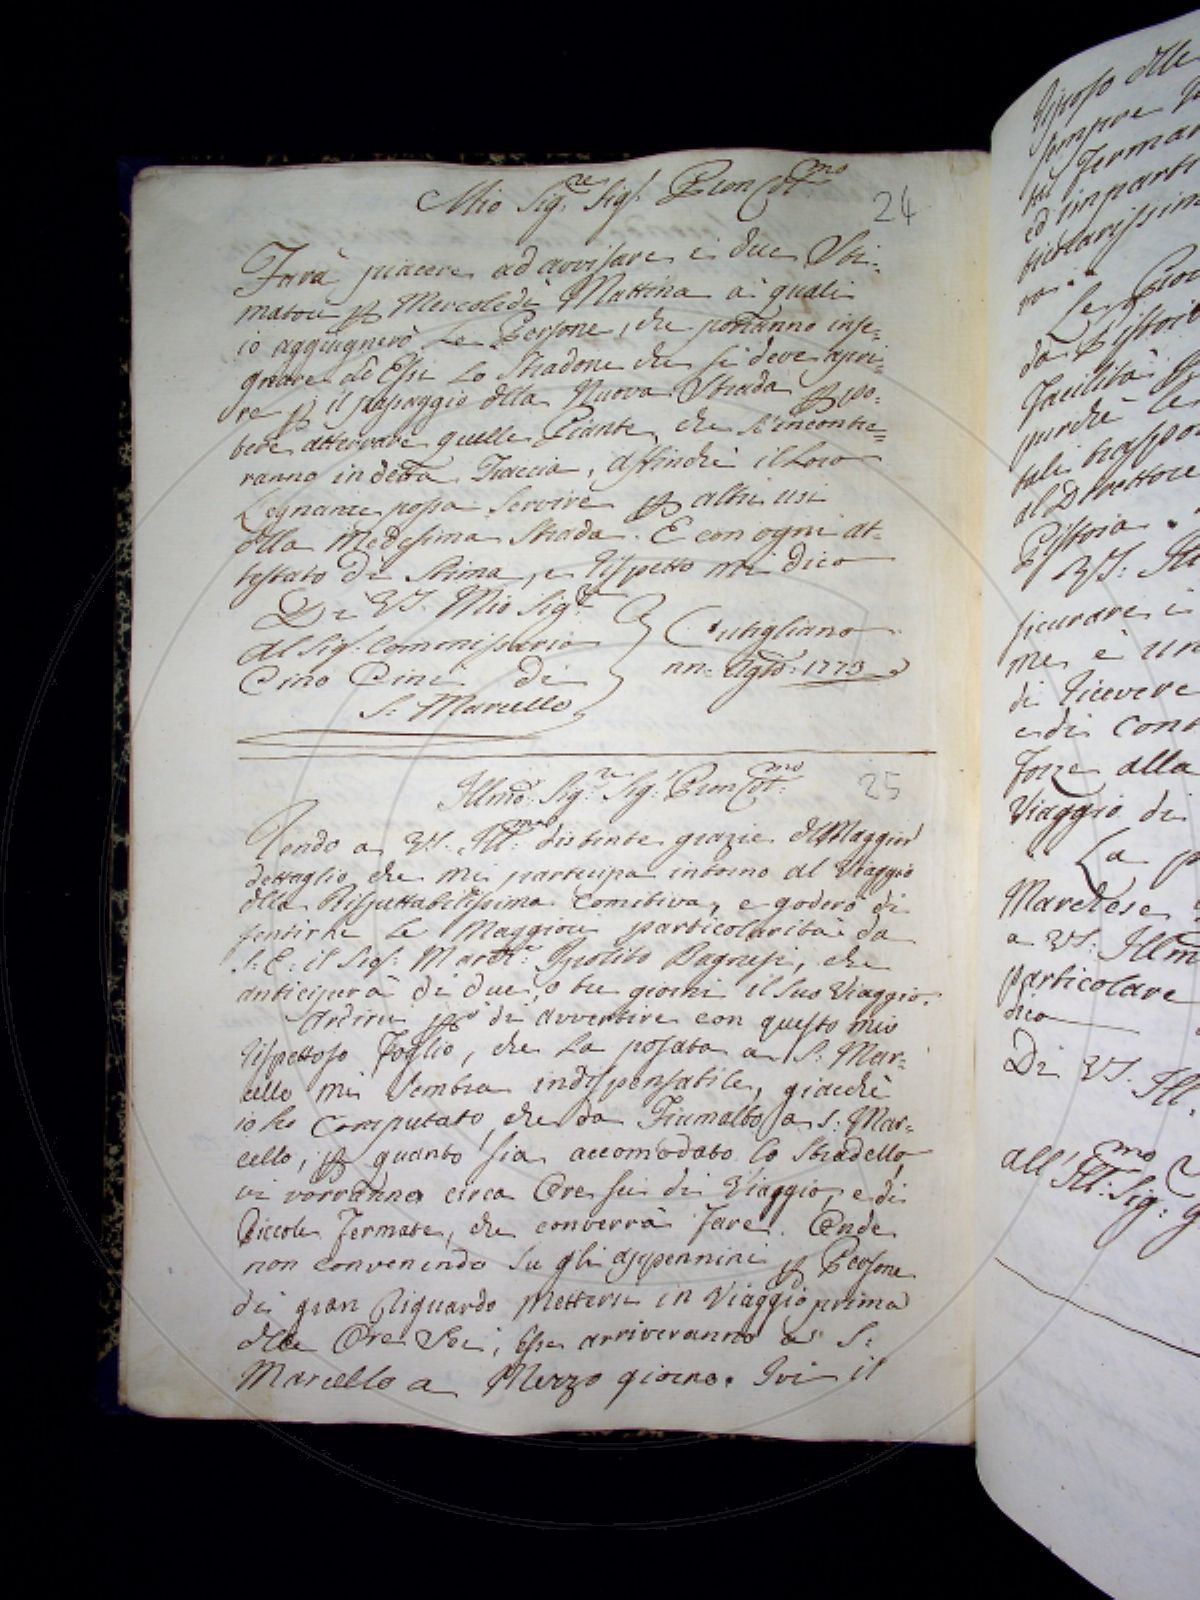 Mio Sig.re Sig.r Pron Col.mo
24
Farà piacere ad avvisare i due Sti-
matori p Mercoledì Mattina a' quali
io aggiugnerò le Persone, che potranno inse-
gnare ad Essi lo Stradone che si deve apri-
re p il passaggio dlla Nuova Strada p po-
tere atterrare quelle Piante, che s'incontre-
ranno in detta Traccia, affinchè il Loro
Legname possa servire p altri usi
dlla Medesima Strada. E con ogni at-
testato di Stima, e rispetto mi dico
Di VS. Mio Sig.re
Al Sig.r Commissario
Cino Cini di
S: Marcello
Cutigliano
nn: Agto: 1773
Illmo: Sig.re Sig.r Pron Col.mo
25
Rendo a VS. Ill.ma distinte grazie dl Maggior
dettaglio, che mi participa intorno al Viaggio
dlla Rispettabilissima Comitiva, e goderò di
sentirne le Maggiori particolarità da
S: E: il Sig.r March.e Ipolito Bagnesi, che
anticiperà di due, o tre giorni il suo Viaggio.
Ardirei pò di avvertire con questo mio
rispettoso Foglio, che la posata a S: Mar-
cello mi sembra indispensabile, giacchè
io ho computato, che da Fiumalbo a S: Mar-
cello, p quanto sia accomodato lo Stradello,
vi vorranno circa Ore sei di Viaggio, e di
Piccole Fermate, che converrà fare. Onde
non convenendo su gli Appennini p Persone
di gran riguardo Mettersi in Viaggio prima
dlle Ore Sei, Esse arriveranno a S:
Marcello a Mezzo giorno. Ivi il
riposo dlle
sempre
ed impart
ra.
Le
da Pistoia
Facilità
purchè le
tali traspor
al Direttore
Pistoia.
VS: Ill
sicurare i
me, è un
di ricevere
e di
forze alla
Viaggio di
La
Marchese
a VS: Illm
particolare
dico
Di VS. Ill.
All' Ill.mo Sig: